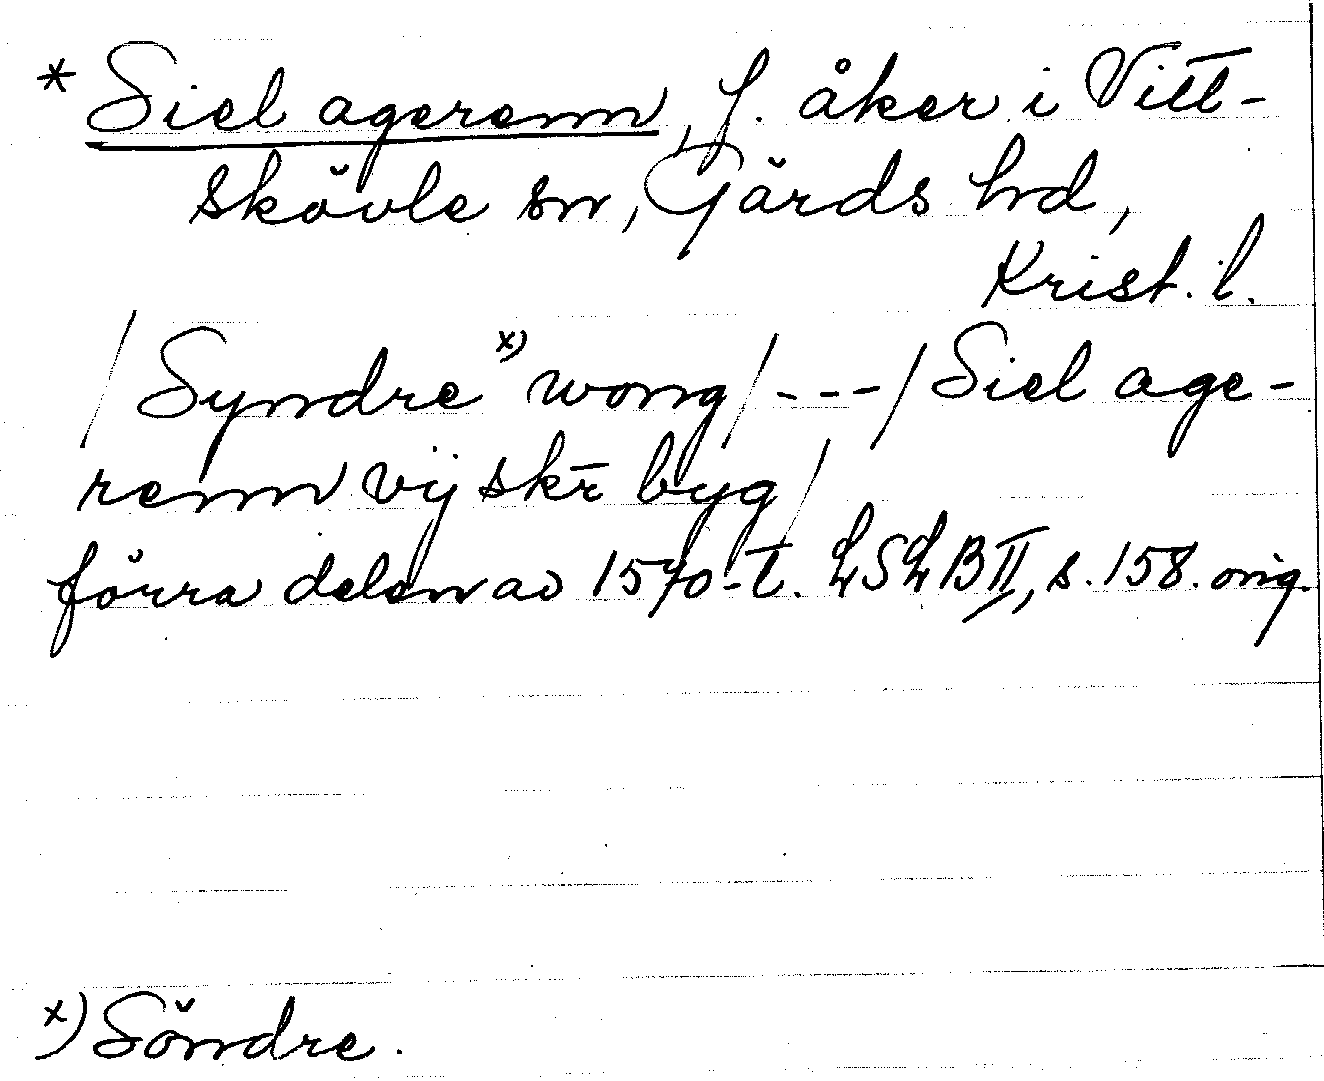 * Siel agerenn, f. åker i Vitt-
skövle sn, Gärds hd,
Krist. l.
/Syndre x) wong/---/Siel age-
renn vij skr̄ byg/
förra delen av 1570-t. LSLB II, s. 158. orig.
x) Söndre.